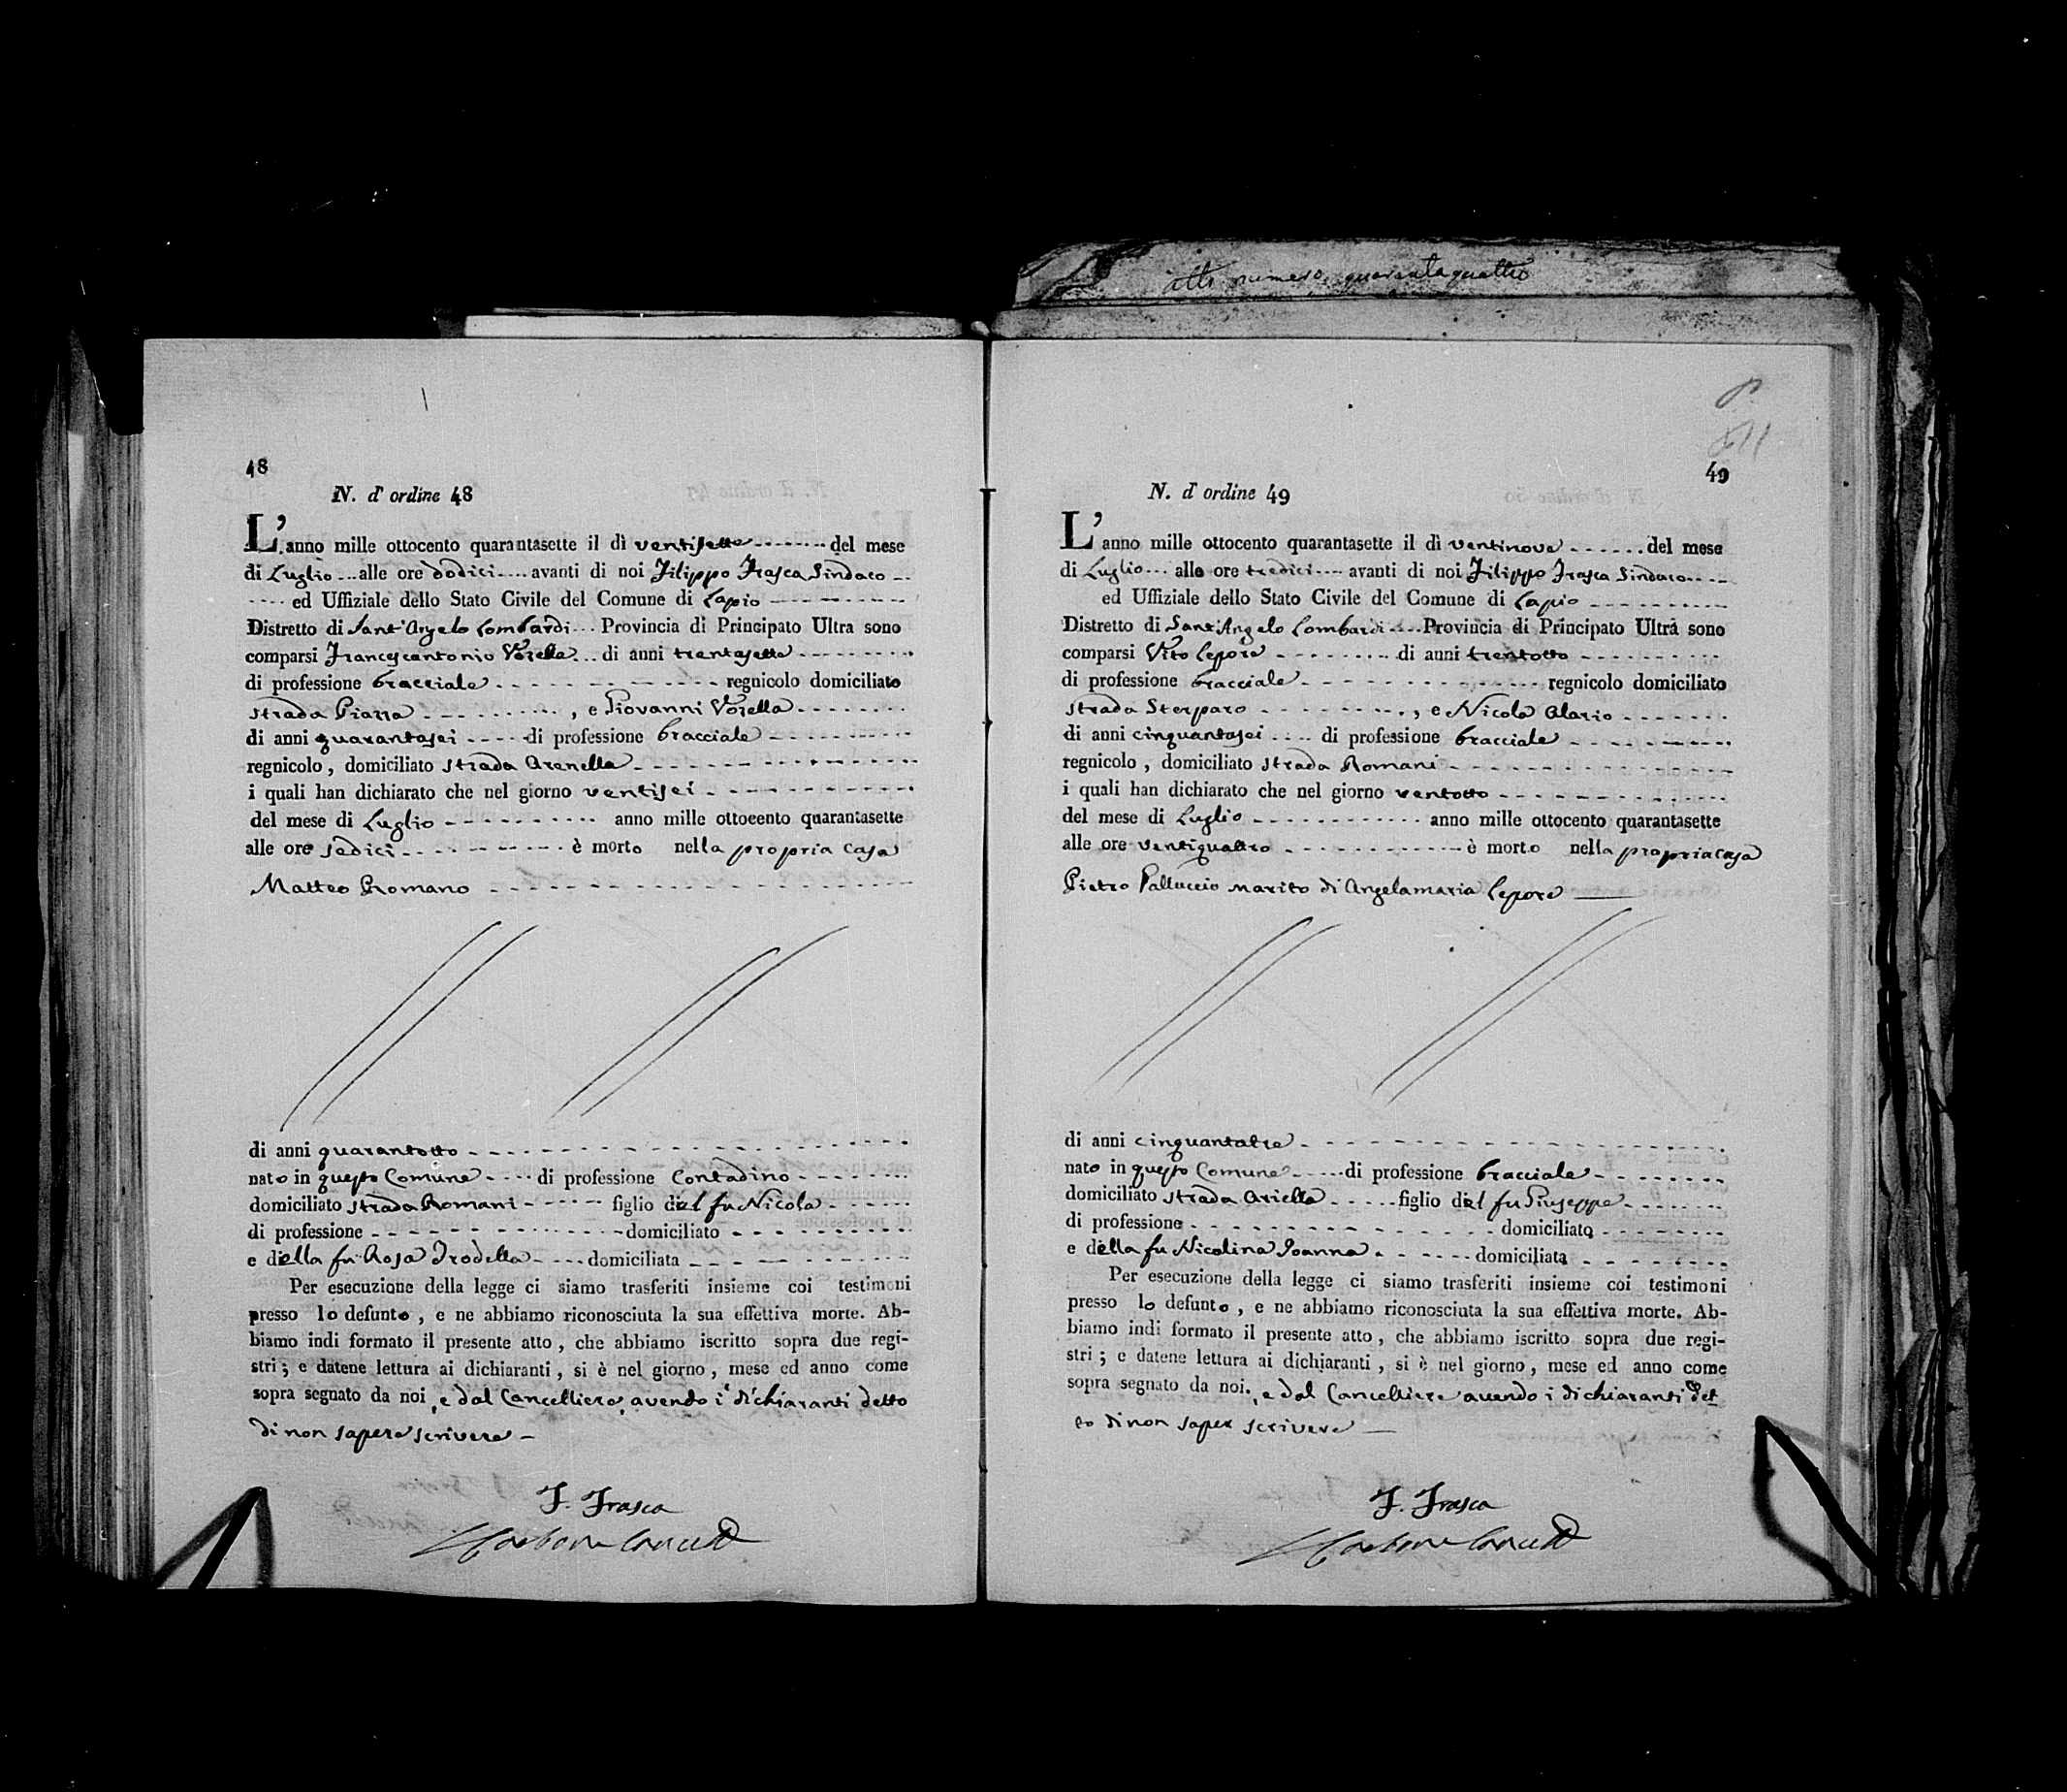 atto numero quarantaquattro
48
N. d' ordine 48
L'anno mille ottocento quarantasette il dì ventisette del mese
di Luglio alle ore dodici avanti di noi Filippo Frasca Sindaco
ed Uffiziale dello Stato Civile del Comune di Lapio
Distretto di Sant'Angelo Lombardi Provincia di Principato Ultra sono
comparsi Francescantonio Vozella di anni trentasette
di professione bracciale regnicolo domiciliato
strada Piazza , e Giovanni Vozella
di anni quarantasei di professione bracciale
regnicolo , domiciliato strada Arenella
i quali han dichiarato che nel giorno ventisei
del mese di Luglio anno mille ottocento quarantasette
alle ore sedici è morto nella propria casa
Matteo Romano
di anni quarantotto
nato in questo Comune di professione Contadino
domiciliato strada Romani figlio del fu Nicola
di professione domiciliato
e della fu Rosa Trodella domiciliata
Per esecuzione della legge ci siamo trasferiti insieme coi testimoni
presso lo defunto , e ne abbiamo riconosciuta la sua effettiva morte. Ab-
biamo indi formato il presente atto , che abbiamo iscritto sopra due regi-
stri ; e datene lettura ai dichiaranti , si è nel giorno , mese ed anno come
sopra segnato da noi, e dal Cancelliere, avendo i dichiaranti detto
di non sapere scrivere
F. Frasca
49
N. d' ordine 49
L'anno mille ottocento quarantasette il dì ventinove del mese
di Luglio alle ore tredici avanti di noi Filippo Frasca Sindaco
ed Uffiziale dello Stato Civile del Comune di Lapio
Distretto di Sant'Angelo Lombardi Provincia di Principato Ultra sono
comparsi Vito Lepore di anni trentotto
di professione bracciale regnicolo domiciliato
strada Sterparo , e Nicola Alario
di anni cinquantasei di professione bracciale
regnicolo , domiciliato strada Romani
i quali han dichiarato che nel giorno ventotto
del mese di Luglio anno mille ottocento quarantasette
alle ore ventiquattro è morto nella propria casa
Pietro Galluccio marito di Angelamaria Lepore
di anni cinquantatre
nato in questo Comune di professione bracciale
domiciliato strada Ariella figlio del fu Giuseppe
di professione domiciliato
e della fu Nicolina Ioanna domiciliata
Per esecuzione della legge ci siamo trasferiti insieme coi testimoni
presso lo defunto , e ne abbiamo riconosciuta la sua effettiva morte. Ab-
biamo indi formato il presente atto , che abbiamo iscritto sopra due regi-
stri ; e datene lettura ai dichiaranti , si è nel giorno , mese ed anno come
sopra segnato da noi, e dal Cancelliere avendo i dichiaranti det
to di non saper scrivere
F. Frasca